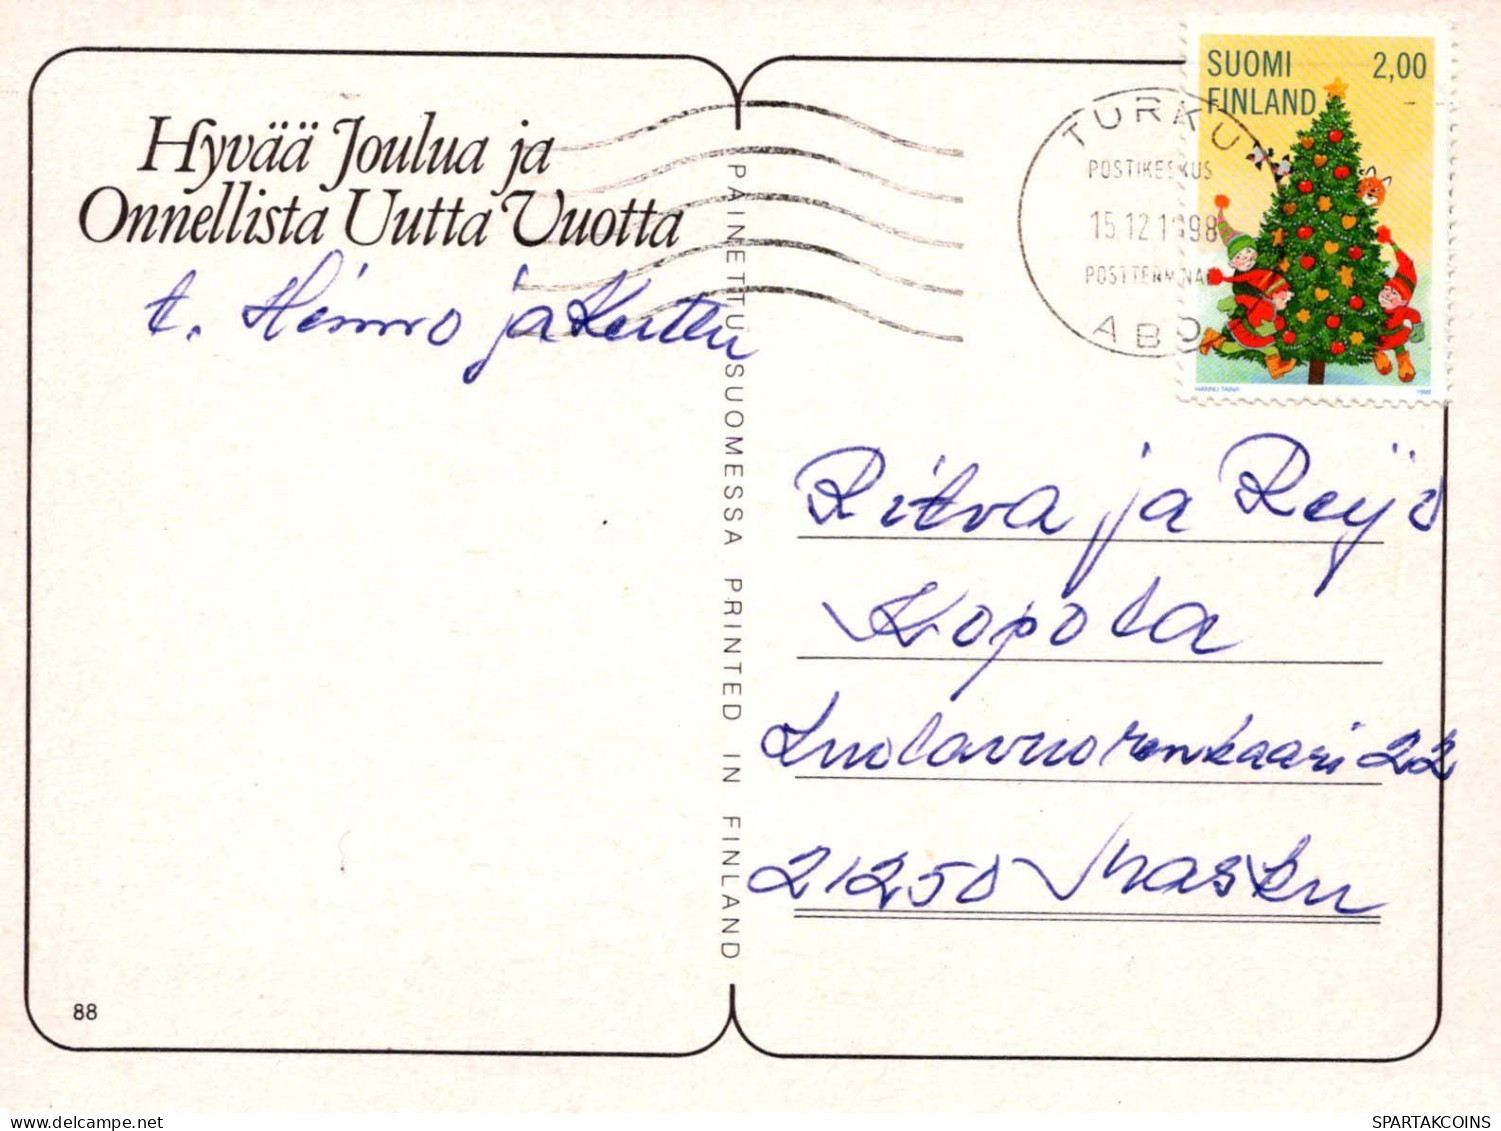 Hyvää Joulua ja
Onnellista Uutta Vuotta
t. Heimo ja Kerttu
88
PAINETTU SUOMESSA PRINTED IN FINLAND
SUOMI 2,00
FINLAND
HANNU TAINA 1998
TURKU
POSTIKESKUS
15.12.1998
POSTTERMINAL
ÅBO
Ritva ja Reijo
Kopola
Luolavuorenkaari 22
21250 Masku
SPARTAKCOINS